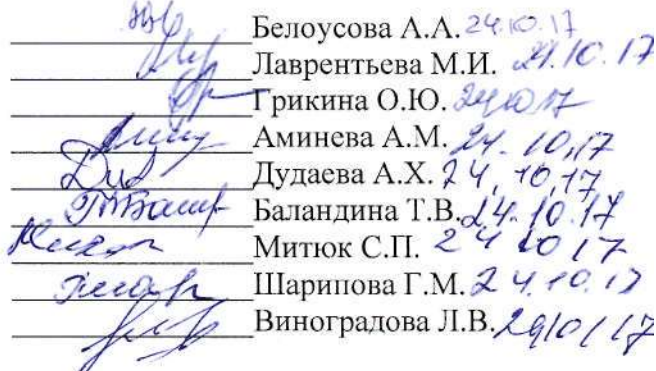 Белоусова А.А. 24.10.17
Лаврентьева М.И. 24.10.17
Грикина О.Ю. 24.10.17
Аминева А.М. 24.10.17
Дудаева А.Х. 24.10.17
Баландина Т.В. 24.10.17
Митюк С.П. 24 10 17
Шарипова Г.М. 24.10.17
Виноградова Л.В.